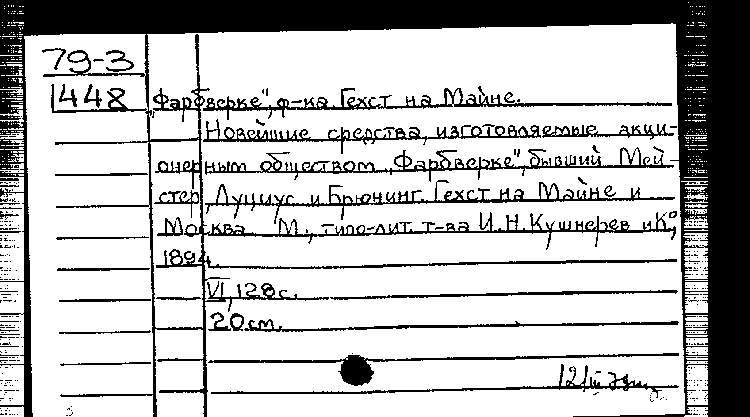 79-3
1448
„Фарбверке", ф-ка. Гехст на Майне.
Новейшие средства, изготовляемые акци-
онерным обществом „Фарбверке", бывший Мей-
стер, Луциус и Брюнинг. Гехст на Майне и
Москва. М., типо-лит. т-ва И.Н.Кушнерев и К°,
1894.
VI, 128 с.
20 см.
12/III